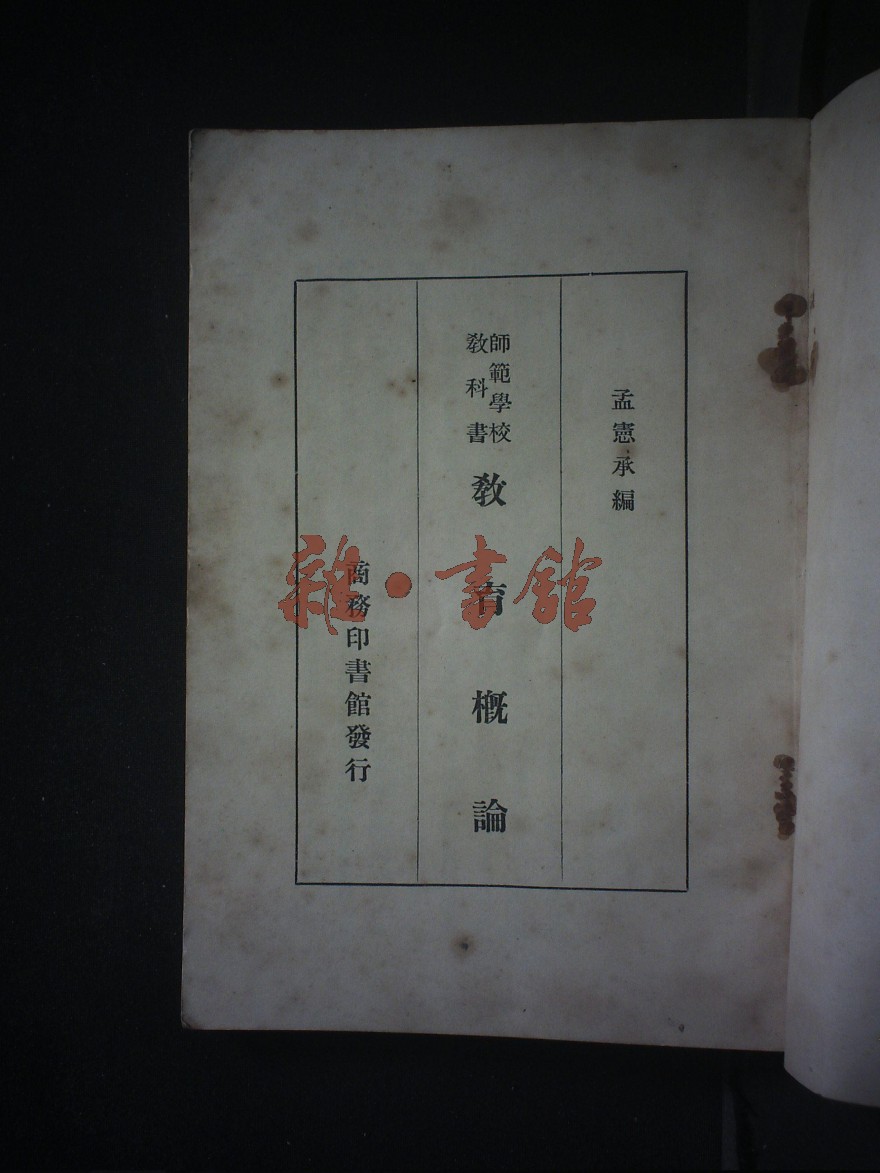 孟憲承編
師範學校
教科書
教育概論
商務印書館發行
雜·書館